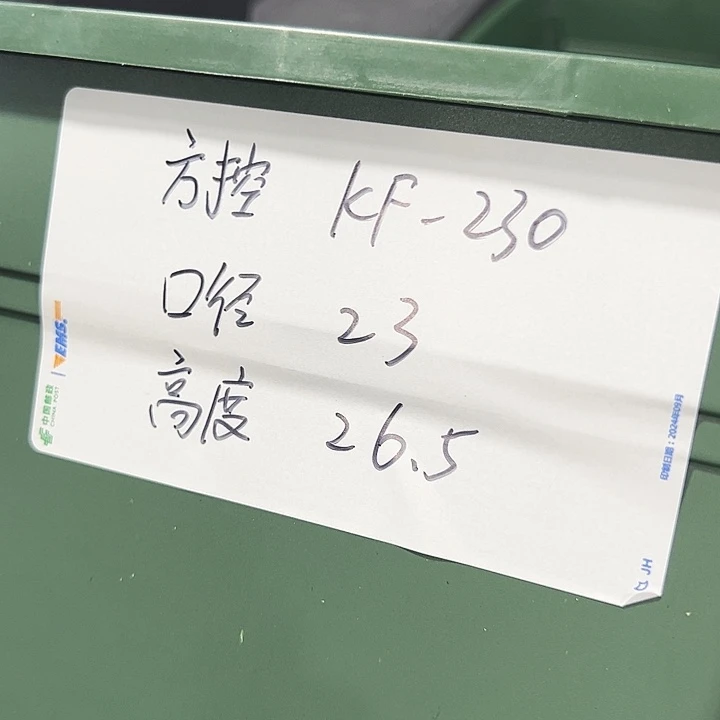 方控 KF-230
口径 23
高度 26.5
EMS
中国邮政
CHINA POST
印制日期：2024年09月
JH